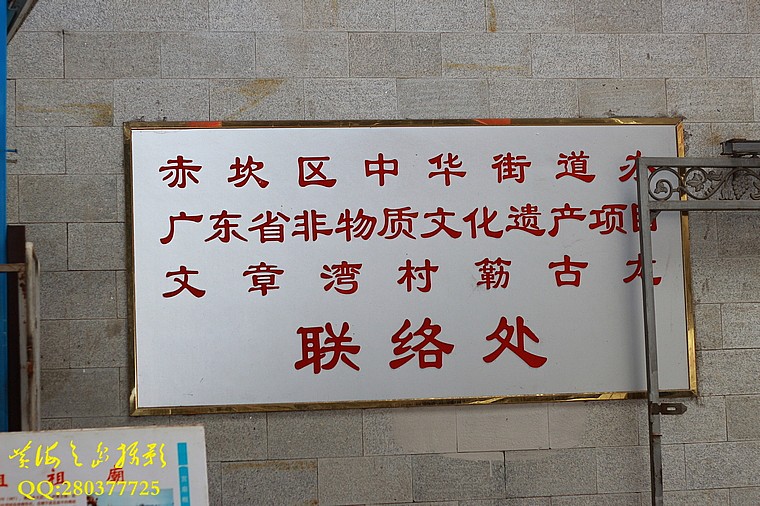 赤坎区中华街道办
广东省非物质文化遗产项目
文章湾村簕古龙
联络处
祖廟
QQ:280377725